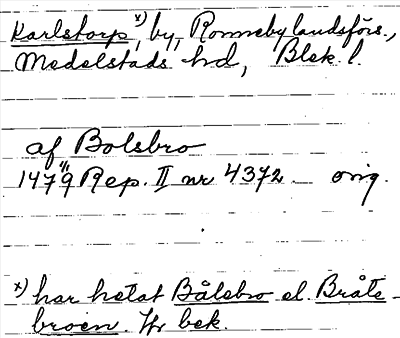 Karlstorp x), by, Ronneby landsförs.,
Medelstads hd, Blek. l.
af Bolsbro
1479 11/9 Rep. II nr 4372 orig.
x) har hetat Bålsbro el. Bråts-
broen.
bek.